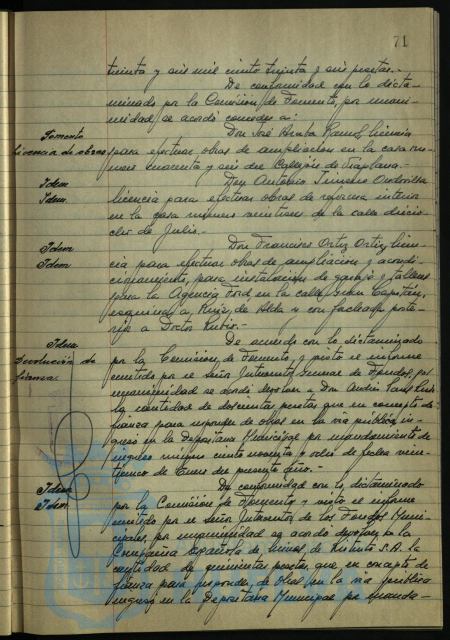 71
treinta y seis mil ciento treinta y seis pesetas.-
De conformidad con lo dicta-
minado por la Comisión de Fomento, por unani-
midad se acordó conceder a:
Fomento
Licencia de obras
Don José licencia
para efectuar obras de ampliación en la casa nu-
mero cuarenta y seis del Callejón de
Idem
Idem
Don Antonio Jimenez
licencia para efectuar obras de reforma interior
en la casa número veintitres de la calle diecio-
cho de Julio.-
Idem
Idem
Don Francisco Ortiz Ortiz, licen-
cia para efectuar obras de ampliación y acondi-
cionamiento, para instalación de garaje y talleres
para la Agencia Ford en la calle Gran Capitán,
esquina a Ruiz de Alda y con fachada poste-
rior a Doctor Rubio.-
Idem
Devolución de
fianza
De acuerdo con lo dictaminado
por la Comisión de Fomento, y visto el informe
emitido por el Señor Interventor de Fondos, por
unanimidad se acordó devolver a Don Andrés
la cantidad de doscientas pesetas que en concepto de
fianza para responder de obras en la via pública in-
gresó en la Depositaria Municipal por mandamiento de
ingreso número ciento noventa y ocho de fecha vein-
ticinco de Enero del presente año.-
Idem
Idem
De conformidad con lo dictaminado
por la Comisión de Fomento y visto el informe
emitido por el Señor Interventor de los Fondos Muni-
cipales, por unanimidad se acordó devolver a la
Compañia Española de Minas de Riotinto S.A. la
cantidad de quinientas pesetas, que en concepto de
fianza para responder de obras en la via pública
ingresó en la Depositaria Municipal por manda-